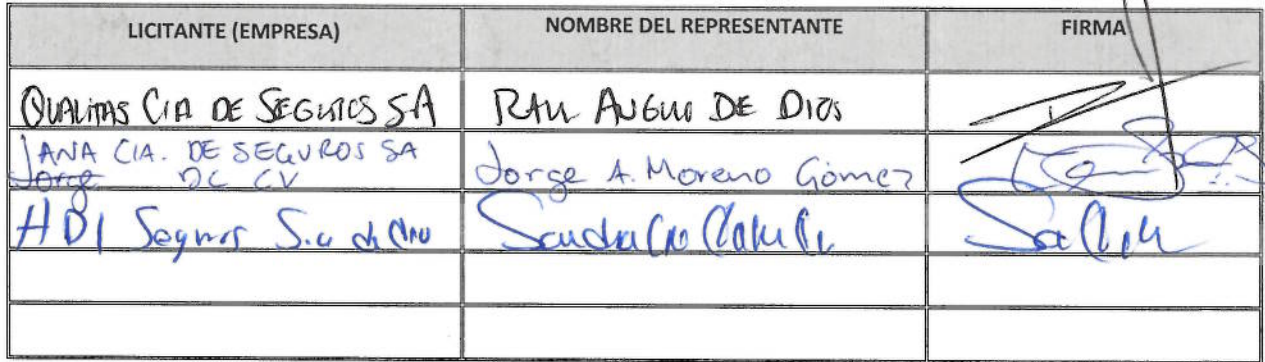 LICITANTE (EMPRESA) NOMBRE DEL REPRESENTANTE FIRMA
QUALITAS CIA DE SEGUROS SA RAUL ANGULO DE DIOS
ANA CIA. DE SEGUROS SA
Jorge DE CV Jorge A. Moreno Gómez
HDI Seguros S.a de C.V. Sandra